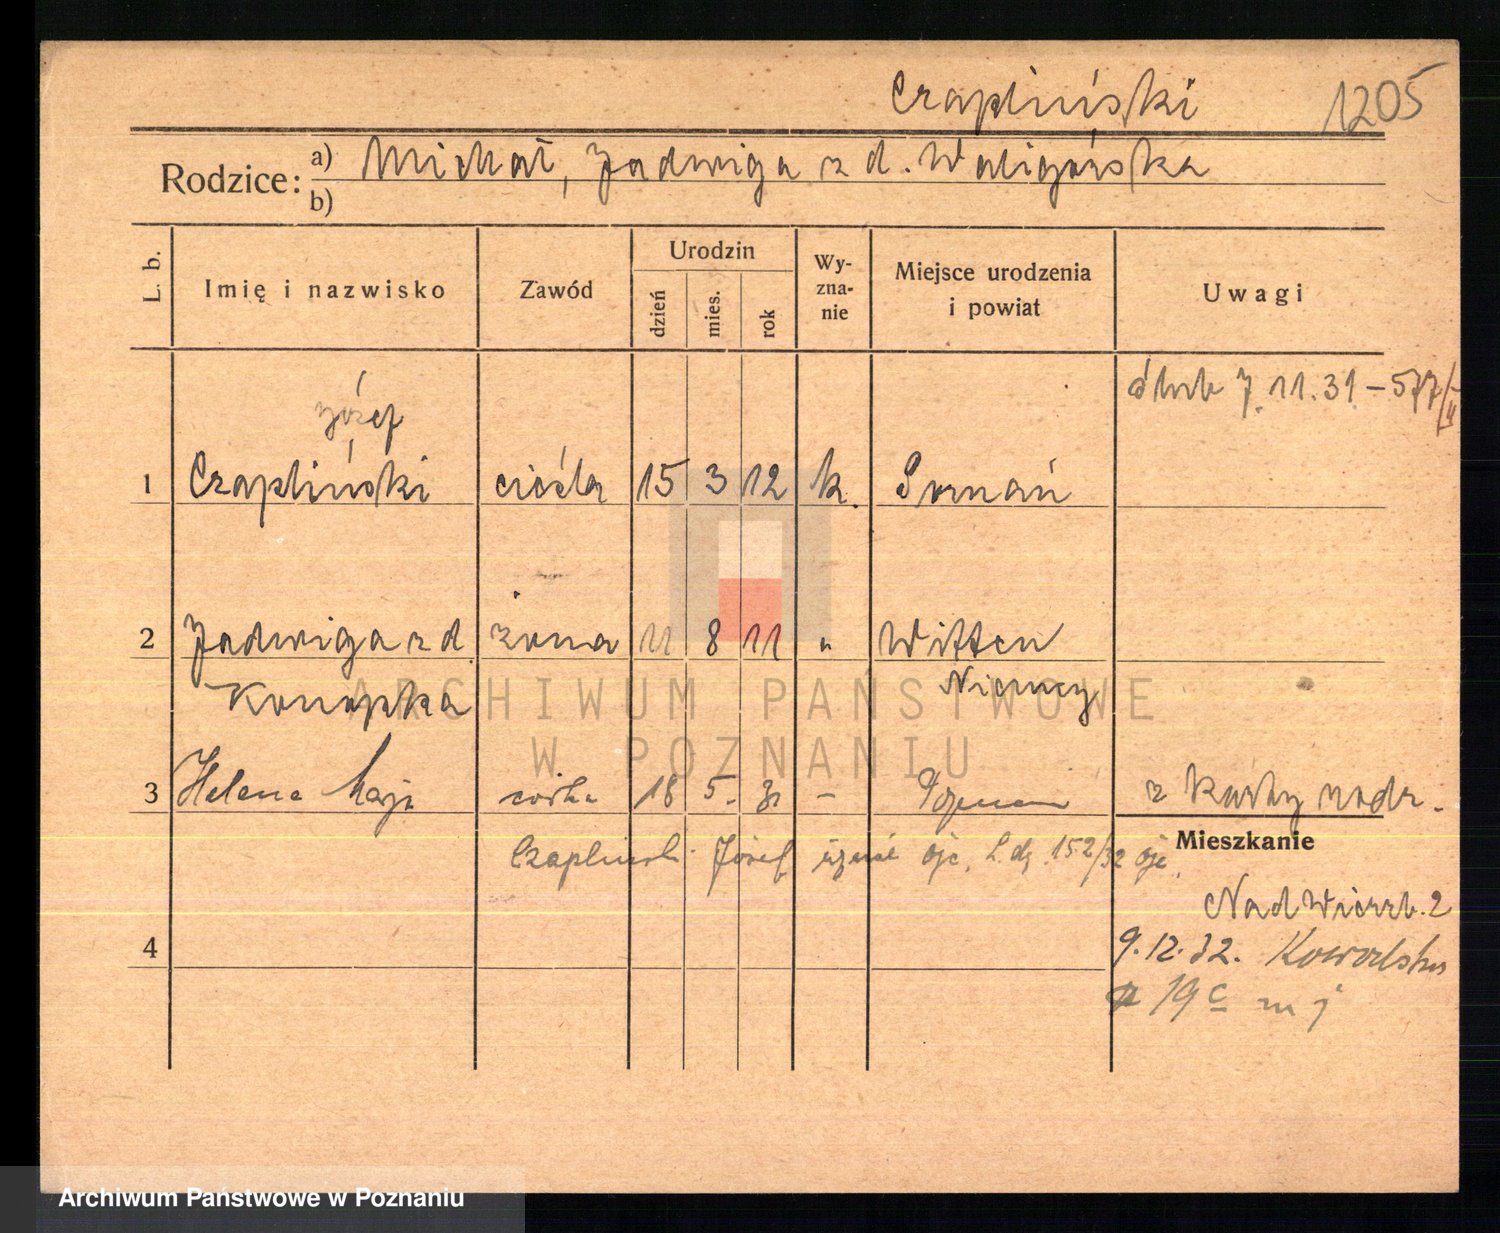 Czapliński 1205
Rodzice: a) Michał, Jadwiga z d. Waligórska
b)
L. b.
Imię i nazwisko
Zawód
Urodzin
dzień
mies.
rok
Wy-
zna-
nie
Miejsce urodzenia
i powiat
Uwagi
ślub 7.11.31 – 577/II
Józef
1 Czapliński cieśla 15 3 12 k. Poznań
2 Jadwiga z d. żona 11 8 11 " Witten
Konopka Niemcy
3 Helena córka 18 5. 31 – Poznań z Karty rodz.
Czapliński Józef uznał ojc. L. dz. 152/32
Mieszkanie
Nad Wierzb. 2
4
9.12.32.
19 c m j
ARCHIWUM PAŃSTWOWE
W POZNANIU
Archiwum Państwowe w Poznaniu